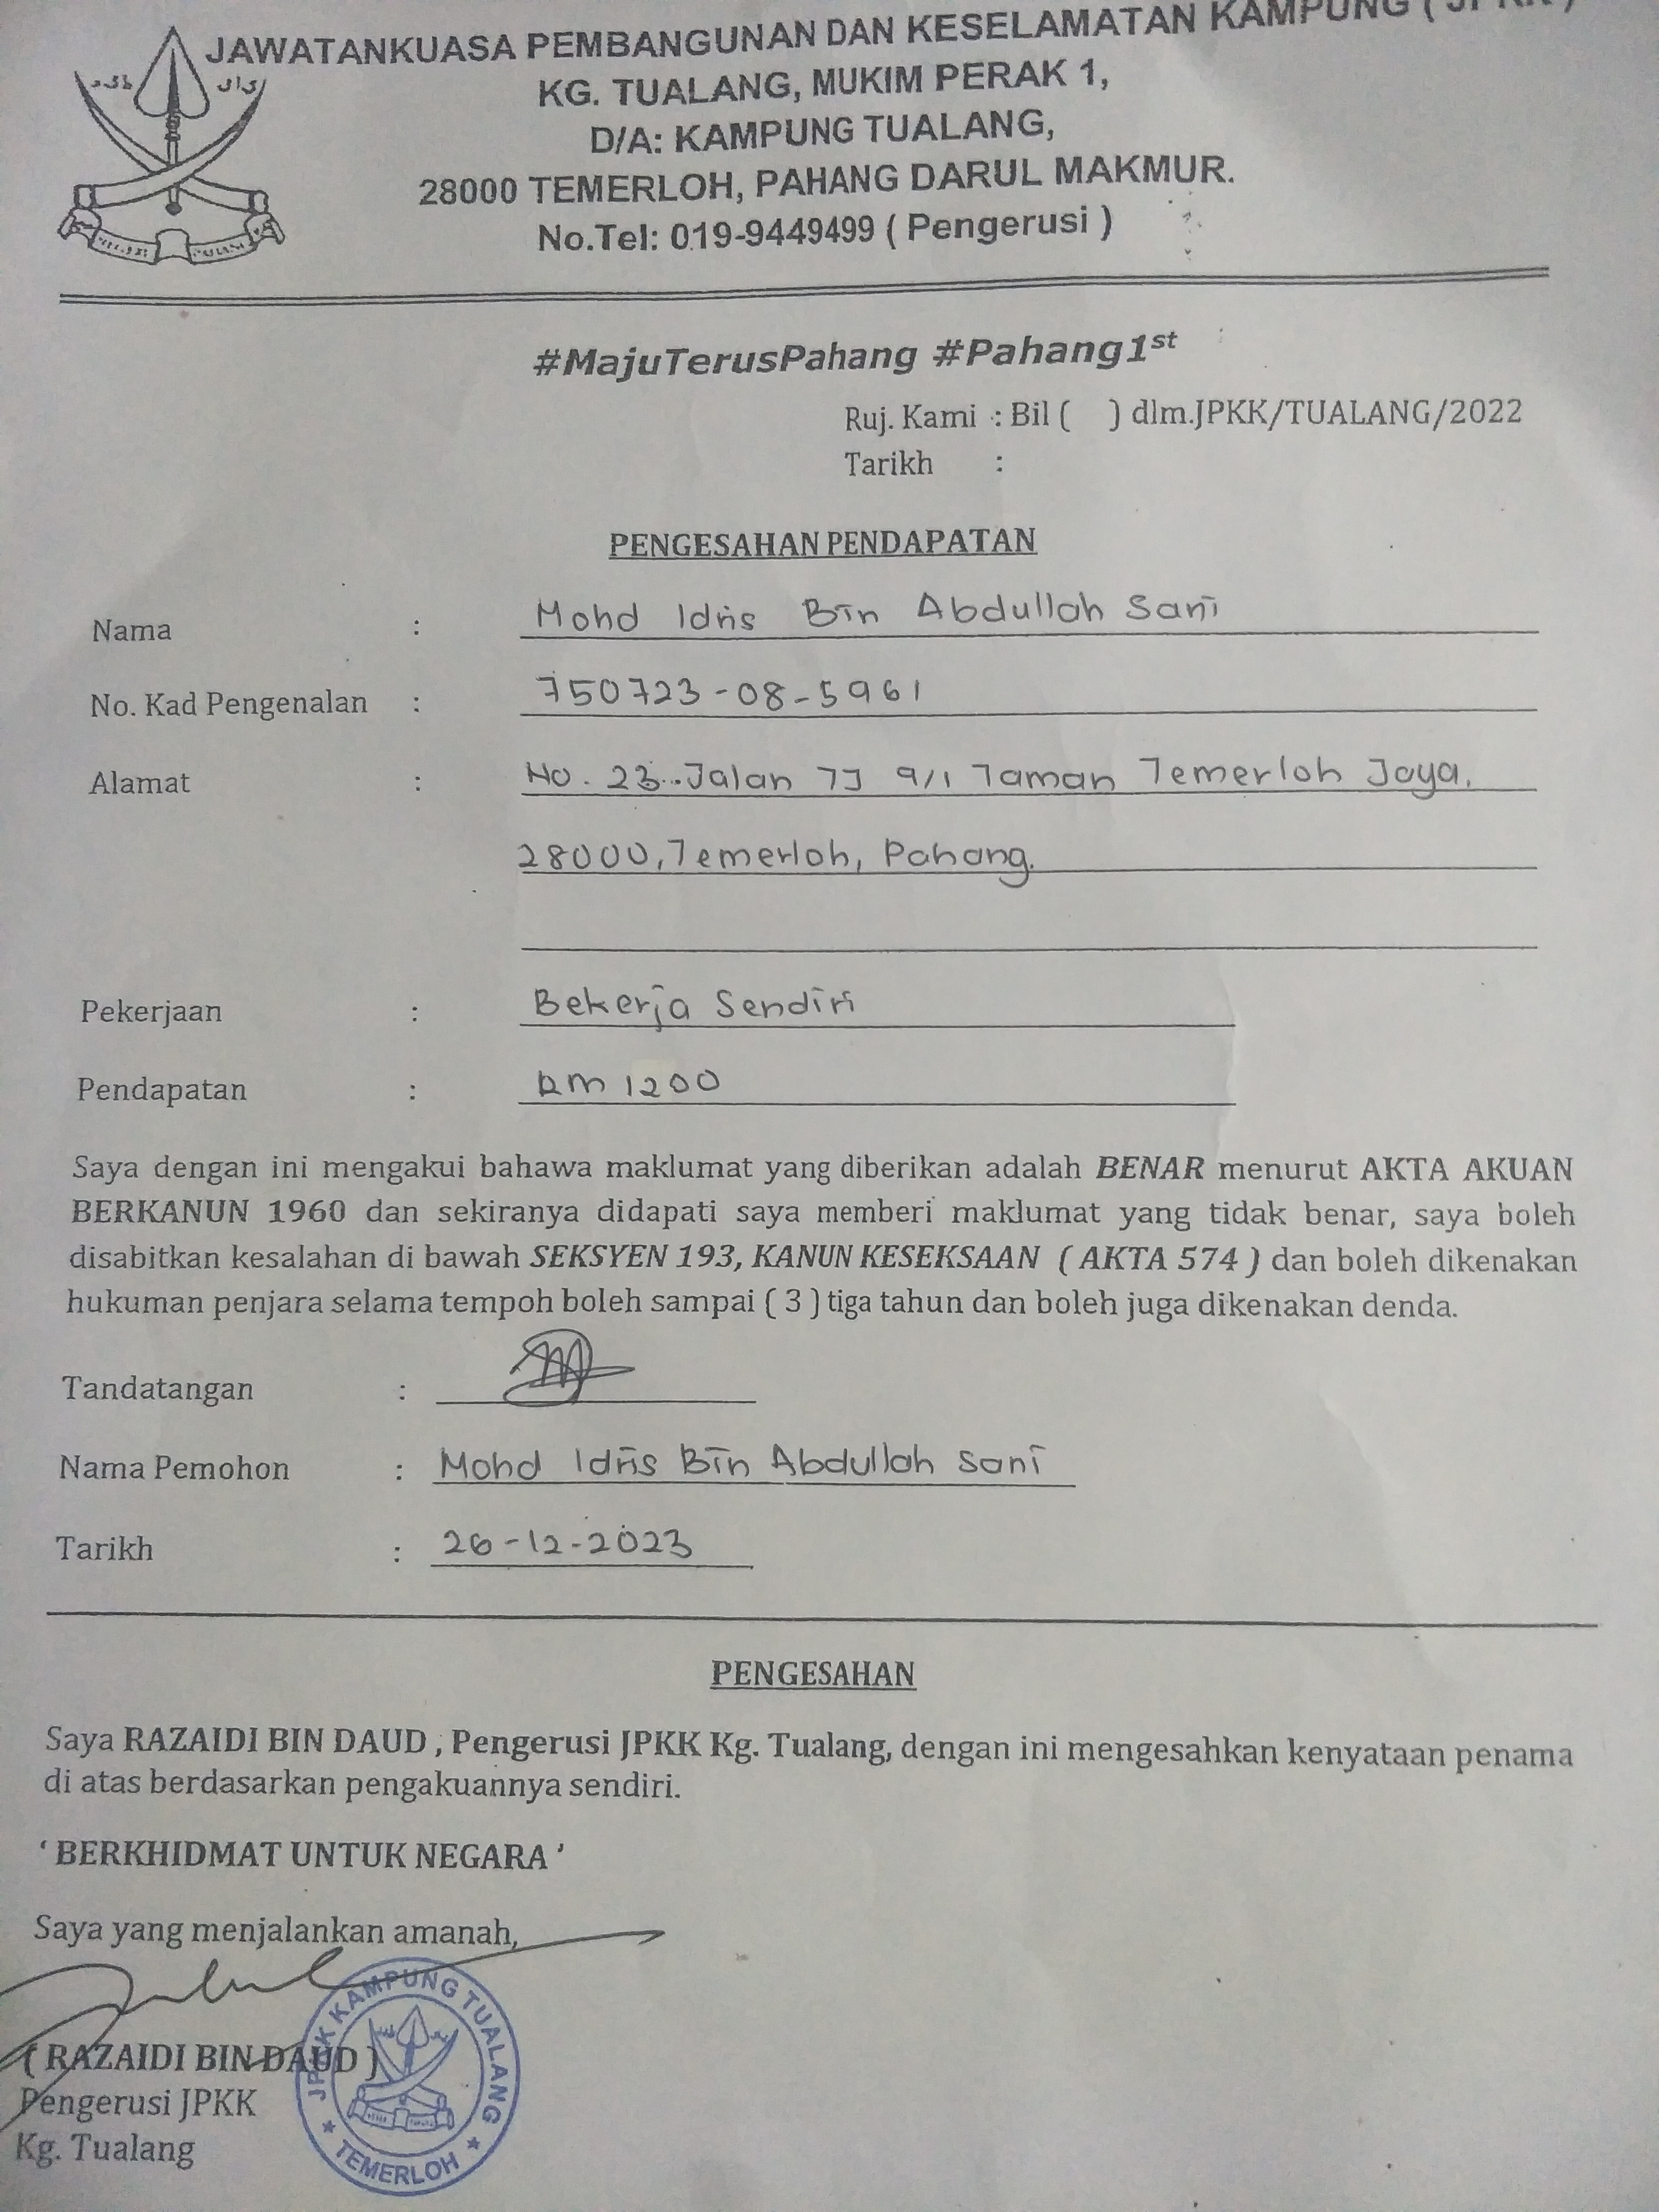 JAWATANKUASA PEMBANGUNAN DAN KESELAMATAN KAMPUNG ( JPKK )
KG. TUALANG, MUKIM PERAK 1,
D/A: KAMPUNG TUALANG,
28000 TEMERLOH, PAHANG DARUL MAKMUR.
No.Tel: 019-9449499 ( Pengerusi )
#MajuTerusPahang #Pahang1st
Ruj. Kami : Bil ( ) dlm.JPKK/TUALANG/2022
Tarikh :
PENGESAHAN PENDAPATAN
Nama : Mohd Idris Bin Abdullah Sani
No. Kad Pengenalan : 750723-08-5961
Alamat : No. 23 Jalan TJ 9/1 Taman Temerloh Jaya.
28000, Temerloh, Pahang.
Pekerjaan : Bekerja Sendiri
Pendapatan : RM 1200
Saya dengan ini mengakui bahawa maklumat yang diberikan adalah BENAR menurut AKTA AKUAN
BERKANUN 1960 dan sekiranya didapati saya memberi maklumat yang tidak benar, saya boleh
disabitkan kesalahan di bawah SEKSYEN 193, KANUN KESEKSAAN ( AKTA 574 ) dan boleh dikenakan
hukuman penjara selama tempoh boleh sampai ( 3 ) tiga tahun dan boleh juga dikenakan denda.
Tandatangan :
Nama Pemohon : Mohd Idris Bin Abdullah Sani
Tarikh : 26-12-2023
PENGESAHAN
Saya RAZAIDI BIN DAUD , Pengerusi JPKK Kg. Tualang, dengan ini mengesahkan kenyataan penama
di atas berdasarkan pengakuannya sendiri.
‘ BERKHIDMAT UNTUK NEGARA ’
Saya yang menjalankan amanah,
( RAZAIDI BIN DAUD )
Pengerusi JPKK
Kg. Tualang
JPKK KAMPUNG TUALANG
TEMERLOH